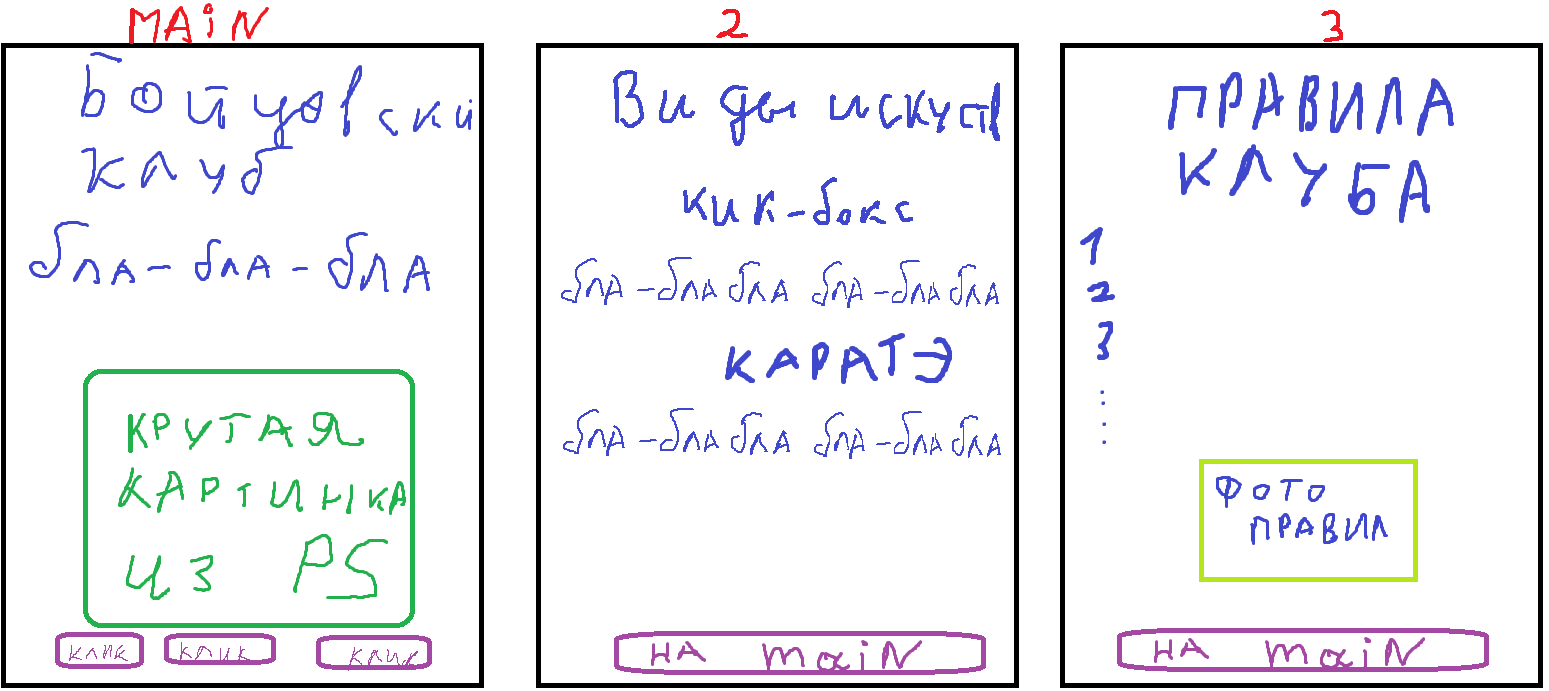 MAiN
Бойцовский
клуб
бла-бла-бла
КРУТАЯ
КАРТИНКА
ИЗ PS
клик клик клик
2
Виды искуств
кик-бокс
бла-бла бла бла-бла бла
КАРАТЭ
бла-бла бла бла-бла бла
НА maiN
3
ПРАВИЛА
КЛУБА
1
2
3
....
ФОТО
ПРАВИЛ
НА maiN